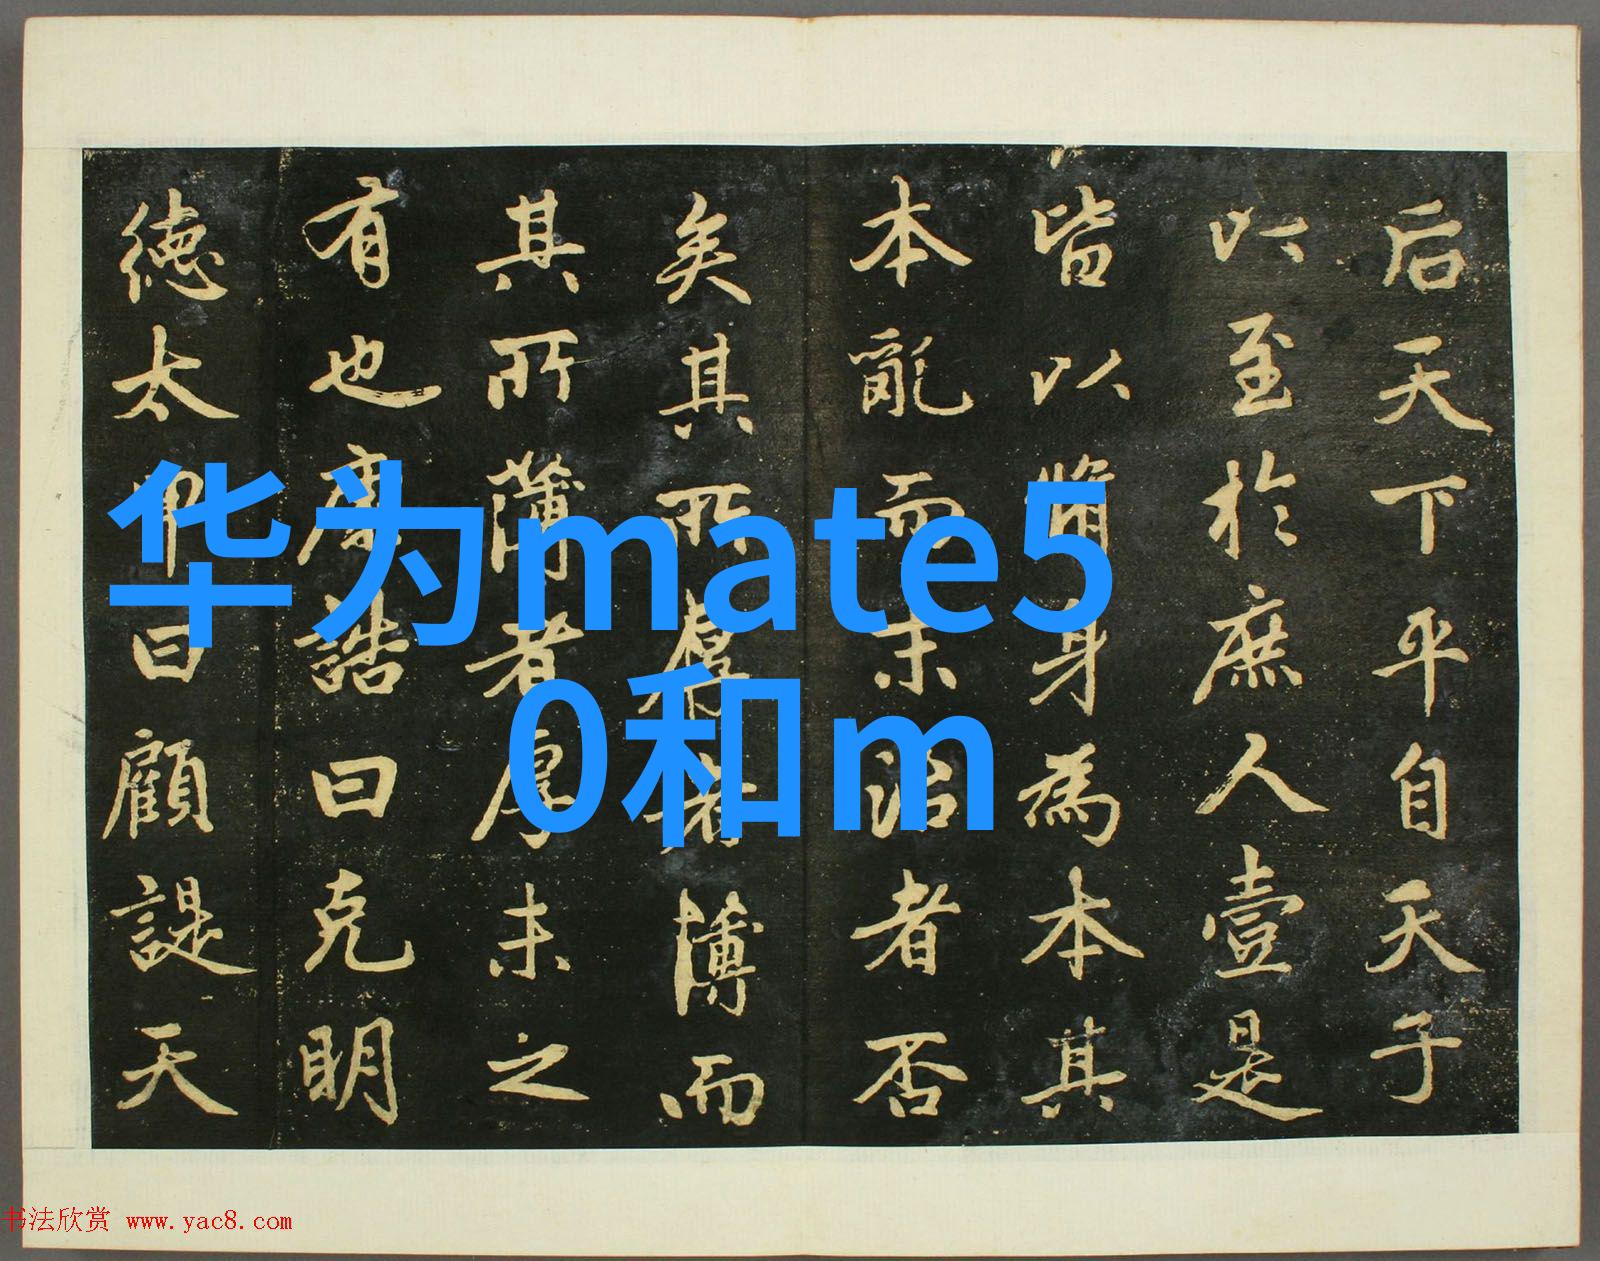 后天下平自天子
以至於庶人壹是
皆以脩身為本其
本亂而末治者否
矣其所厚者薄而
其所薄者厚未之
有也康誥曰克明
德太甲曰顧諟天
华为mate5
0和m
书法欣赏 www.yac8.com